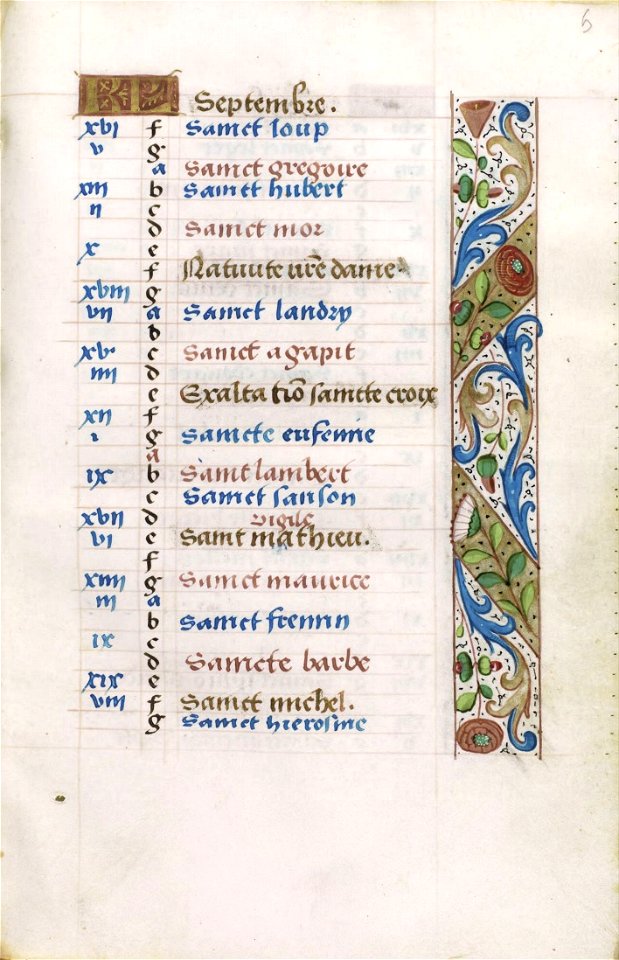 6
KL Septembre.
xvi f Sainct loup
v g
a Sainct gregoire
xiii b Sainct hubert
ii c
d Sainct mor
x e
f Natiuite nr̃e dame
xviii g
vii a Sainct landry
b
xv c Sainct agapit
iiii d
e Exaltatiõ saincte croix
xii f
i g Saincte eufenne
a
ix b Sainct lambert
c Sainct sanson
xvii d Vigile
vi e Sainct mathieu.
f
xiiii g Sainct maurice
iii a
b Sainct fremin
ix c
d Saincte barbe
xix e
viii f Sainct michel.
g Sainct hierosme